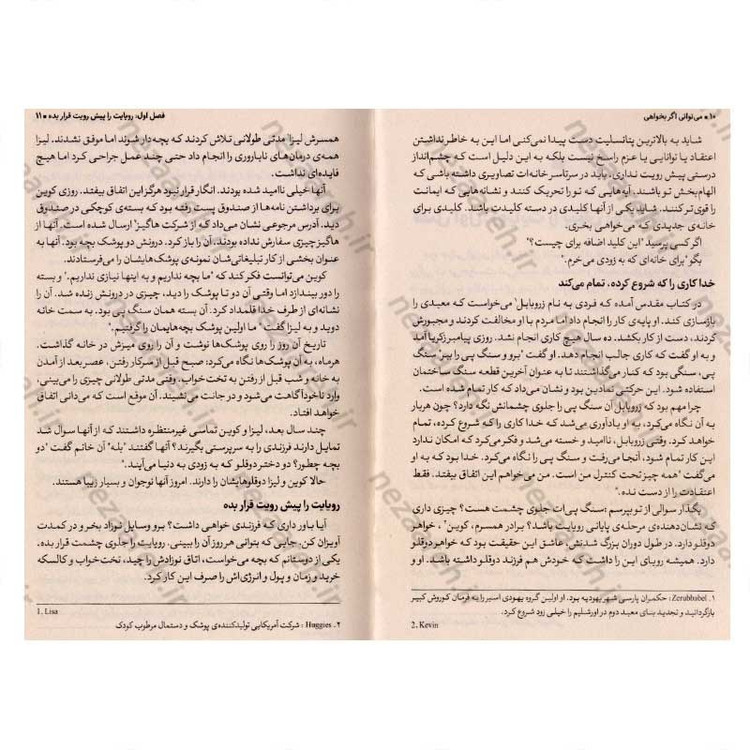 ۱۰ ■ می‌توانی اگر بخواهی
شاید به بالاترین پتانسلیت دست پیدا نمی‌کنی اما این به خاطر نداشتن
اعتقاد یا توانایی یا عزم راسخ نیست بلکه به این دلیل است که چشم‌انداز
درستی پیش رویت نداری. باید در سرتاسر خانه‌ات تصاویری داشته باشی که
الهام‌بخش تو باشند. آیه‌هایی که تو را تحریک کنند و نشانه‌هایی که ایمانت
را قوی‌تر کنند. شاید یکی از آنها کلیدی در دسته کلیدت باشد. کلیدی برای
خانه‌ی جدیدی که می‌خواهی بخری.
اگر کسی پرسید "این کلید اضافه برای چیست؟"
بگو "برای خانه‌ای که به زودی می‌خرم."
خدا کاری را که شروع کرده، تمام می‌کند
در کتاب مقدس آمده که فردی به نام زروبابل۱ می‌خواست که معبدی را
بازسازی کند. او پایه‌ی کار را انجام داد اما مردم با او مخالفت کردند و مجبورش
کردند، دست از کار بکشد. ده سال هیچ کاری انجام نشد. روزی پیامبر زکریا آمد
و به او گفت که کاری جالب انجام دهد. او گفت "برو و سنگ پی را ببین" سنگ
پی، سنگی بود که کنار می‌گذاشتند تا به عنوان آخرین قطعه سنگ ساختمان
استفاده شود. این حرکتی نمادین بود و نشان می‌داد که کار تمام شده است.
چرا مهم بود که زروبابل آن سنگ پی را جلوی چشمانش نگه دارد؟ چون هربار
به آن نگاه می‌کرد، به او یادآوری می‌شد که خدا کاری را که شروع کرده، تمام
خواهد کرد. وقتی زروبابل، ناامید و خسته می‌شد و فکر می‌کرد که امکان ندارد
این کار تمام شود، آنجا می‌رفت و سنگ پی را نگاه می‌کرد. این سنگ به او
می‌گفت "همه چیز تحت کنترل من است. من می‌خواهم این اتفاق بیفتد. فقط
اعتقادت را از دست نده."
بگذار سوالی از تو بپرسم :سنگ پی‌ات جلوی چشمت هست؟ چیزی داری
که نشان‌دهنده‌ی مرحله‌ی پایانی رویایت باشد؟ برادر همسرم، کوین۲، خواهر
دوقلو دارد. در طول دوران بزرگ شدنش، عاشق این حقیقت بود که خواهر دوقلو
دارد. همیشه رویای این را داشت که خودش هم فرزند دوقلو داشته باشد. او و
۱. Zerubbabel : حکمران پارسی شهر یهودیه بود. او اولین گروه یهودی اسیر را به فرمان کوروش کبیر
بازگردانید و تجدید بنای معبد دوم در اورشلیم را خیلی زود شروع کرد.
2. Kevin
فصل اول: رویایت را پیش رویت قرار بده ■ ۱۱
همسرش لیزا۱ مدتی طولانی تلاش کردند که بچه‌دار شوند اما موفق نشدند. لیزا
همه‌ی درمان‌های ناباروری را انجام داد حتی چند عمل جراحی کرد اما هیچ
فایده‌ای نداشت.
آنها خیلی ناامید شده بودند. انگار قرار نبود هرگز این اتفاق بیفتد. روزی کوین
برای برداشتن نامه‌ها از صندوق پست رفته بود که بسته‌ی کوچکی در صندوق
دید. آدرس مرجوعی نشان می‌داد که از شرکت هاگیز۲ ارسال شده است. آنها از
هاگیز چیزی سفارش نداده بودند. آن را باز کرد. درونش دو پوشک بچه بود. آنها به
عنوان بخشی از کار تبلیغاتی‌شان نمونه‌ی پوشک‌هایشان را می‌فرستادند.
کوین می‌توانست فکر کند که "ما بچه نداریم و به اینها نیازی نداریم." و بسته
را دور بیندازد اما وقتی آن دو تا پوشک را دید، چیزی در درونش زنده شد. آن را
نشانه‌ای از طرف خدا قلمداد کرد. آن بسته همان سنگ پی بود. به سمت خانه
دوید و به لیزا گفت "ما اولین پوشک بچه‌هایمان را گرفتیم."
تاریخ آن روز را روی پوشک‌ها نوشت و آن را روی میزش در خانه گذاشت.
هرماه، به آن پوشک‌ها نگاه می‌کرد: صبح قبل از سرکار رفتن، عصر بعد از آمدن
به خانه و شب قبل از رفتن به تخت‌خواب. وقتی مدتی طولانی چیزی را می‌بینی،
وارد ناخودآگاهت می‌شود و در جانت می‌نشیند. آن موقع است که می‌دانی اتفاق
خواهد افتاد.
چند سال بعد، لیزا و کوین تماسی غیرمنتظره داشتند که از آنها سوال شد
تمایل دارند فرزندی را به سرپرستی بگیرند؟ آنها گفتند "بله" آن خانم گفت "دو
بچه چطور؟ دو دختر دوقلو که به زودی به دنیا می‌آیند."
حالا کوین و لیزا دوقلوهایشان را دارند. امروز آنها نوجوان و بسیار زیبا هستند.
رویایت را پیش رویت قرار بده
آیا باور داری که فرزندی خواهی داشت؟ برو وسایل نوزاد بخر و در کمدت
آویزان کن. جایی که بتوانی هر روز آن را ببینی. رویایت را جلوی چشمت قرار بده.
یکی از دوستانم که بچه می‌خواست، اتاق نوزادش را چید، تخت‌خواب و کالسکه
خرید و زمان و پول و انرژی‌اش را صرف این کار کرد.
1. Lisa
۲. Huggies : شرکت آمریکایی تولیدکننده‌ی پوشک و دستمال مرطوب کودک
nezaaneh.ir